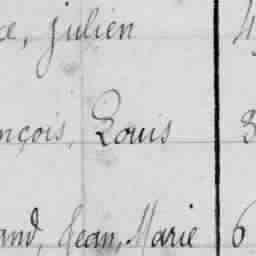 ce, Julien 4
nçois, Louis 8
and, Jean, Marie 6